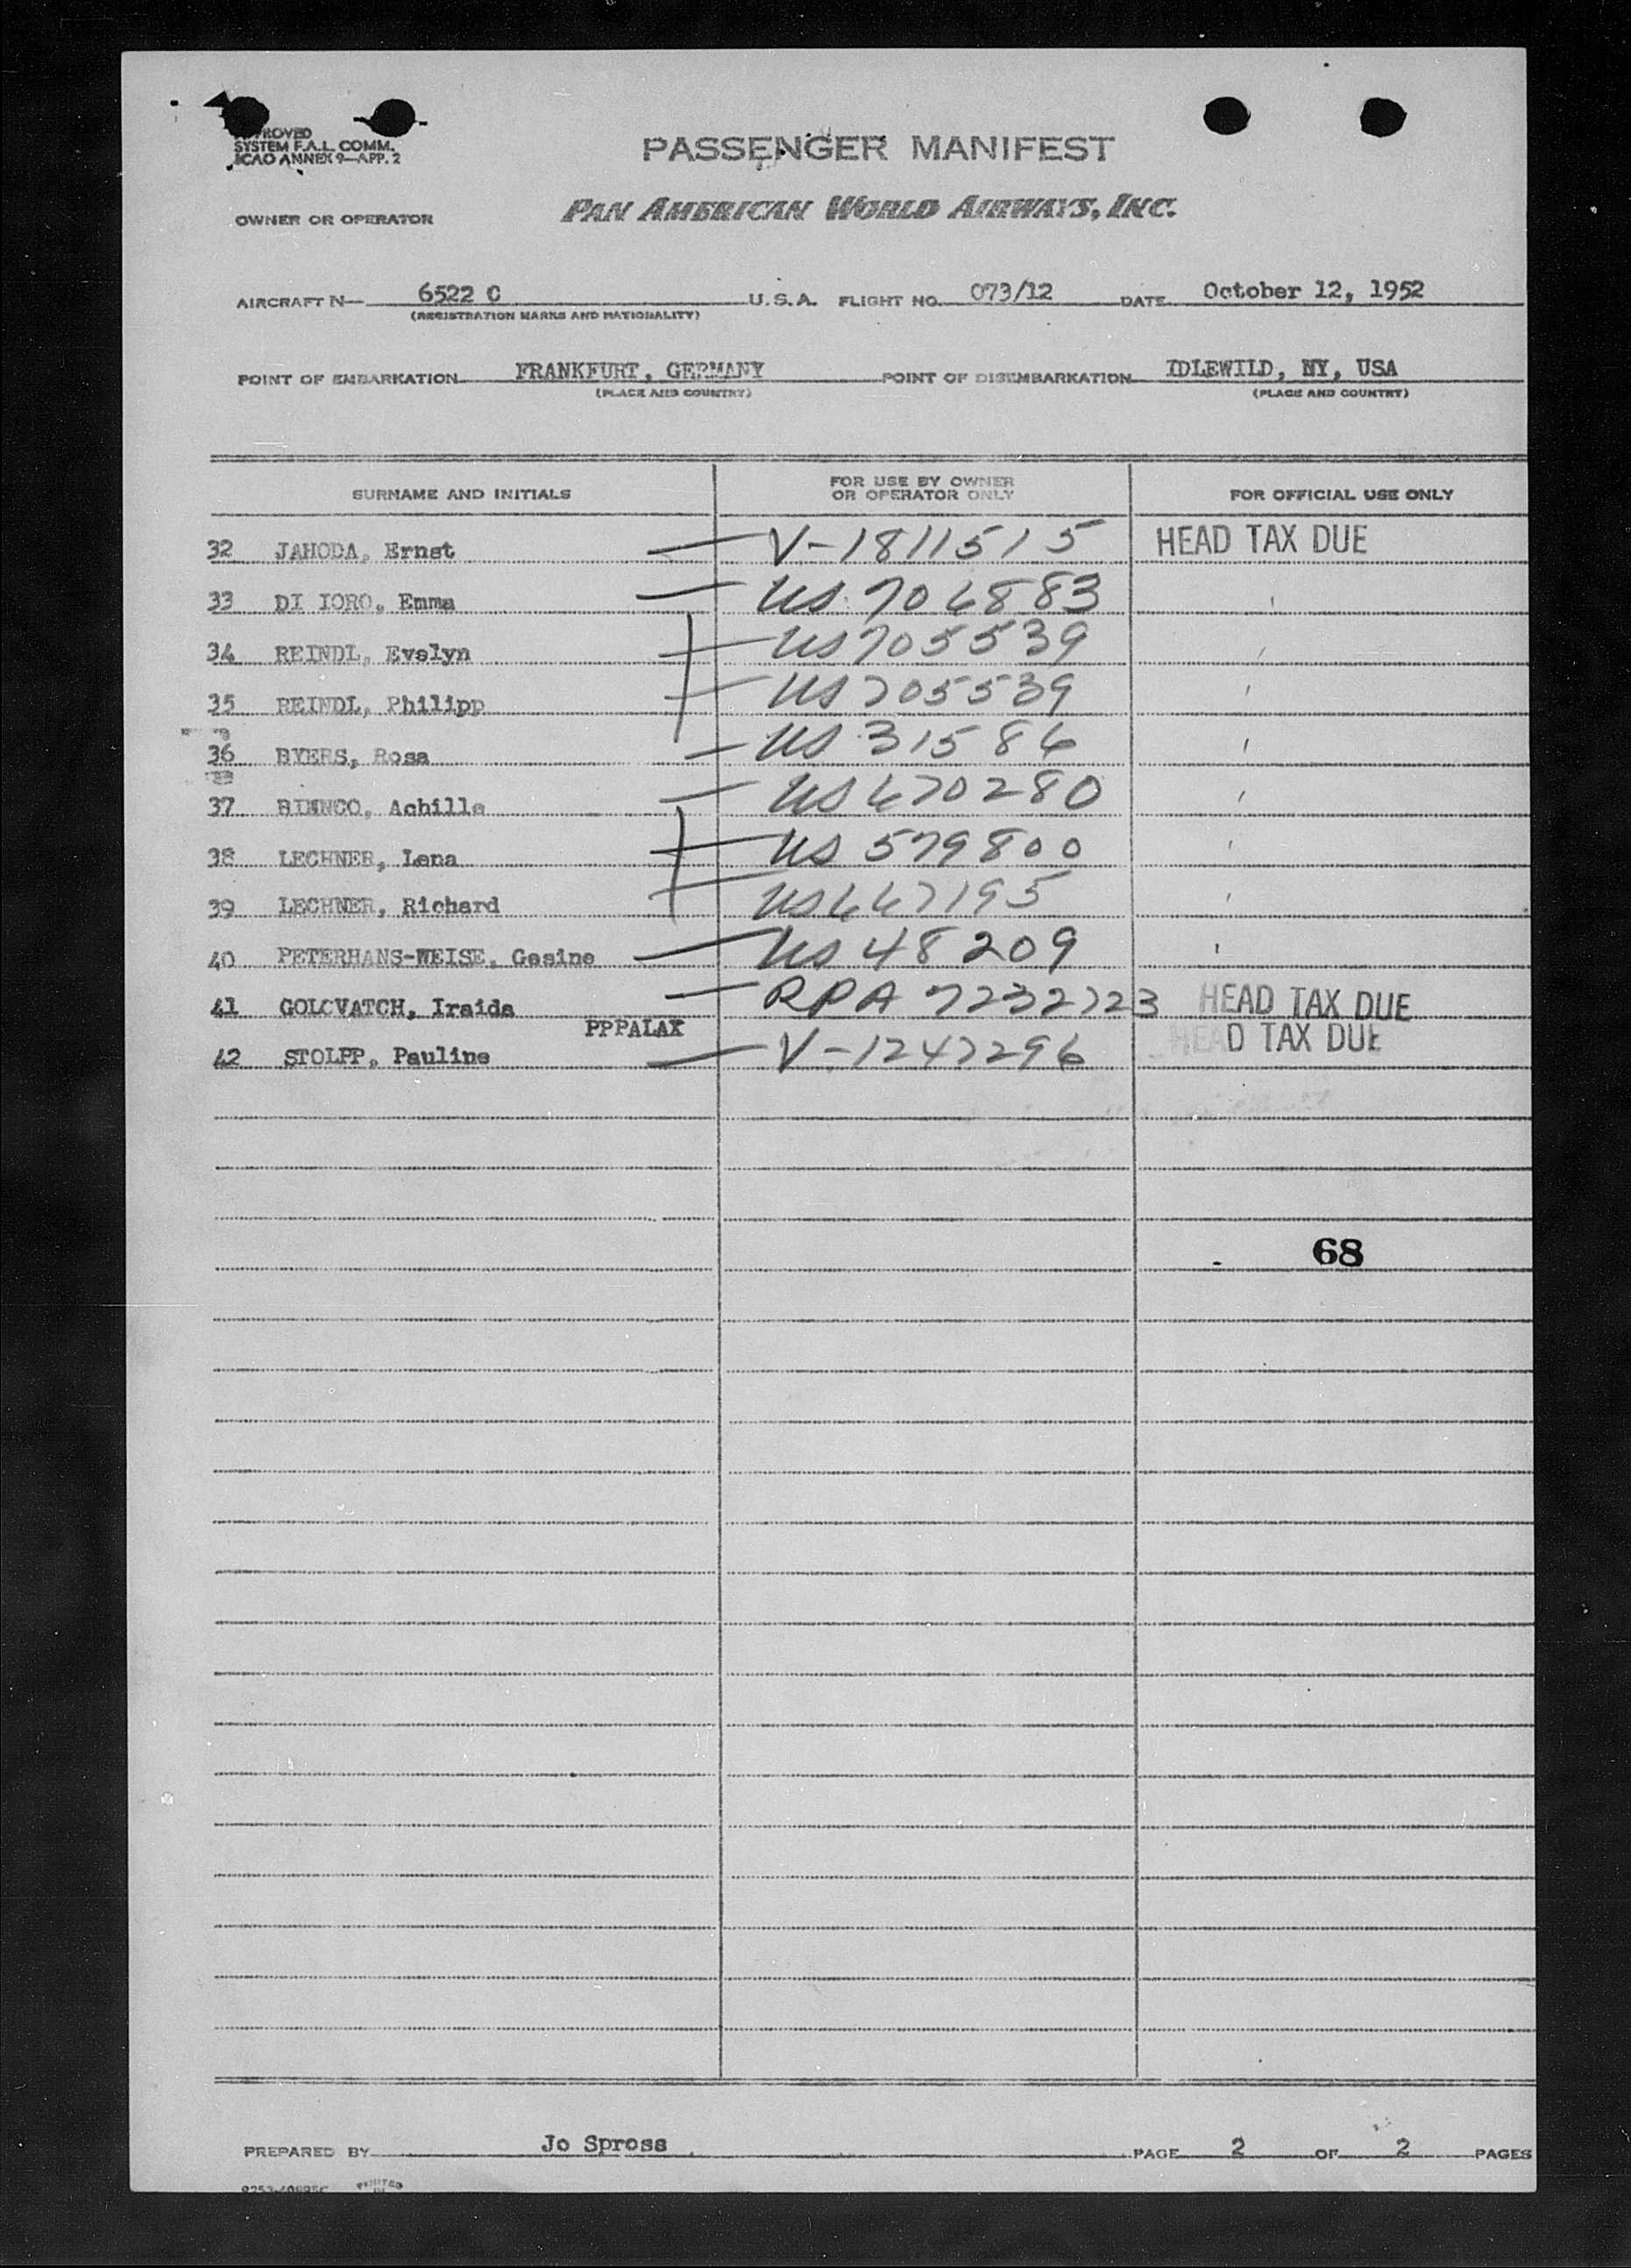 APPROVED
SYSTEM F.A.L. COMM.
ICAO ANNEX 9—APP. 2
PASSENGER MANIFEST
OWNER OR OPERATOR PAN AMERICAN WORLD AIRWAYS, INC.
AIRCRAFT N— 6522 C U.S.A. FLIGHT NO. 073/12 DATE October 12, 1952
(REGISTRATION MARKS AND NATIONALITY)
POINT OF EMBARKATION FRANKFURT, GERMANY POINT OF DISEMBARKATION IDLEWILD, NY, USA
(PLACE AND COUNTRY) (PLACE AND COUNTRY)
SURNAME AND INITIALS FOR USE BY OWNER OR OPERATOR ONLY FOR OFFICIAL USE ONLY
32 JAHODA, Ernst V-1811515 HEAD TAX DUE
33 DI IORO, Emma US 706883
34 REINDL, Evelyn US 705539
35 REINDL, Philipp US 705539
36 BYERS, Rosa US 31586
37 Achille US 670280
38 LECHNER, Lena US 579800
39 LECHNER, Richard US 667195
40 PETERHANS-WEISE, Gesine US 48209
41 GOLOVATCH, Iraida RPA 7232723 HEAD TAX DUE
PPPALAX
42 STOLPP, Pauline V-1247296 HEAD TAX DUE
68
PREPARED BY Jo Spross PAGE 2 OF 2 PAGES